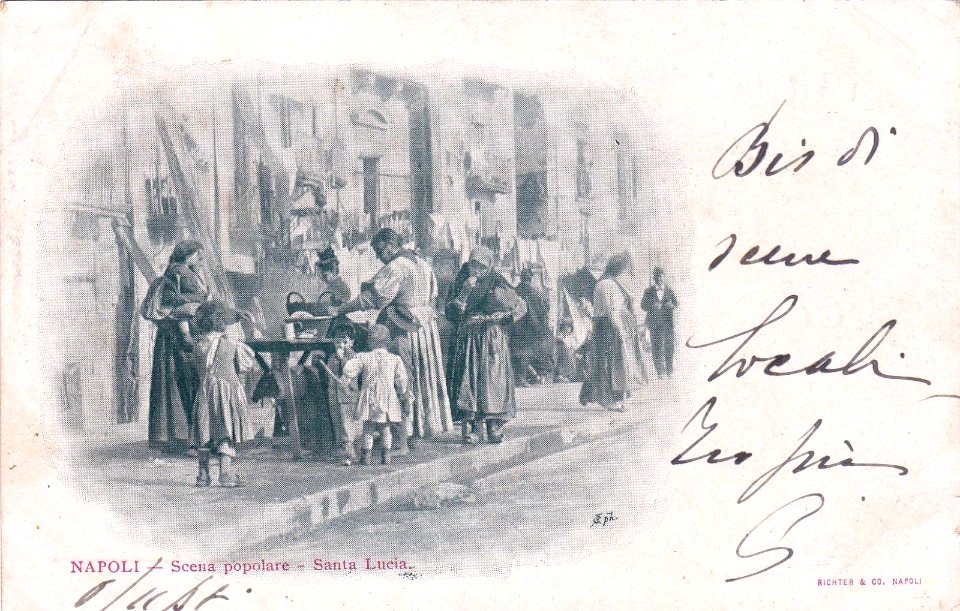 Bis di
scene
Locali
più
S
NAPOLI — Scena popolare – Santa Lucia.
RICHTER & CO. NAPOLI